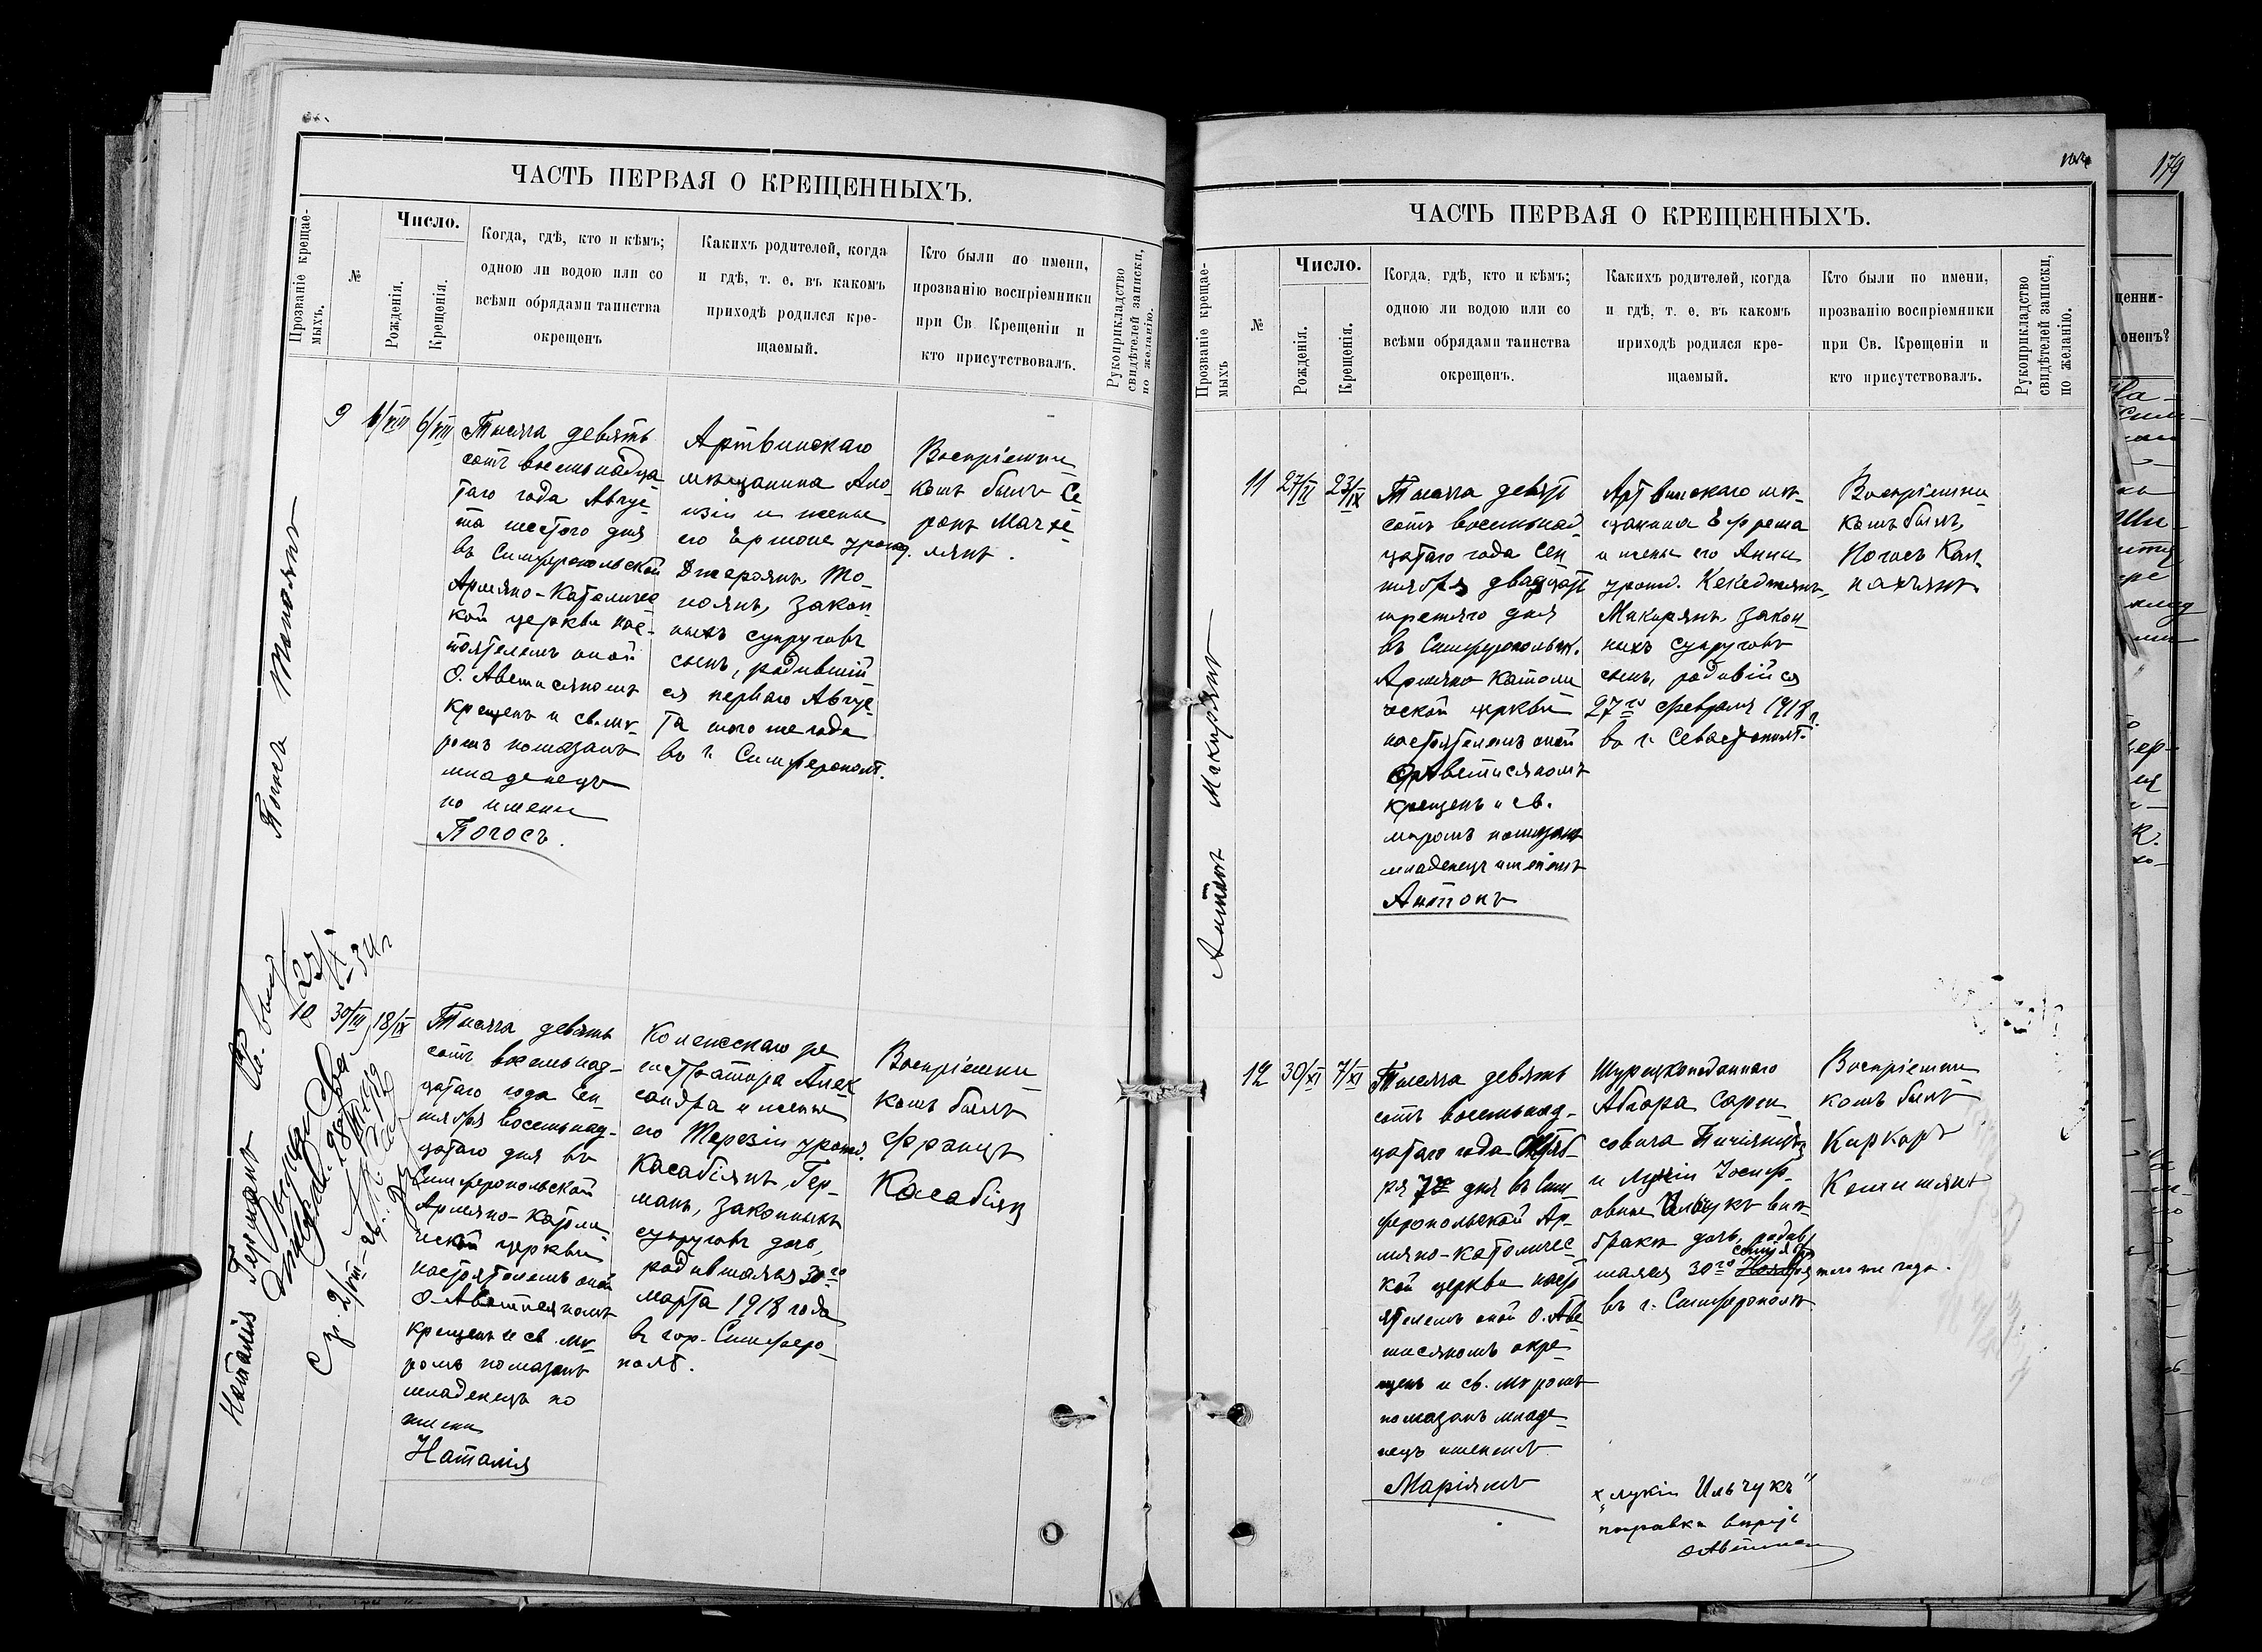 ЧАСТЬ ПЕРВАЯ О КРЕЩЕННЫХЪ.
Прозваніе крещае-
мыхъ.
№
Число.
Рожденія.
Крещенія.
Когда, гдѣ, кто и кѣмъ;
одною ли водою или со
всѣми обрядами таинства
окрещенъ
Какихъ родителей, когда
и гдѣ, т. е. въ какомъ
приходѣ родился кре-
щаемый.
Кто были по имени,
прозванію воспріемники
при Св. Крещеніи и
кто присутствовалъ.
Рукоприкладство
свидѣтелей записки,
по желанію.
Погосъ Топоянъ
9
1/VIII
6/VIII
Тысяча девять
сотъ восемьнадца
таго года Авгус-
та шестого дня
въ Симферопольской
Армяно-Католичес
кой церкви нас-
тоятелемъ оной
О. Аветисяномъ
крещенъ и св. мѵ-
ромъ помазанъ
младенецъ
по имени
Погосъ.
Артвинскаго
мѣщанина Ало-
изія и жены
его урожд.
Джероянъ, То-
поянъ, закон-
ныхъ супруговъ
сынъ, родившій-
ся перваго Авгус-
та того же года
въ г. Симферополѣ.
Воспріемни-
комъ былъ Се-
ропъ
Наталія Германъ
10
30/III
18/IX
Тысяча девять
сотъ восемьнад-
цатаго года Сен-
тября восемьнад-
цатаго дня въ
Симферопольской
Армяно-Католи-
ческой церкви
настоятелемъ оной
О. Аветисяномъ
крещенъ и св. мѵ-
ромъ помазанъ
младенецъ по
имени
Наталія
Коллежскаго ре
гистратора Алек
сандра и жены
его Терезіи урожд.
Касабіянъ, Гер-
манъ, законныхъ
супруговъ дочь,
родившаяся 30го
марта 1918 года
въ гор. Симферо-
полѣ.
Воспріемни-
комъ былъ
Францъ
Касабіянъ
ЧАСТЬ ПЕРВАЯ О КРЕЩЕННЫХЪ.
Прозваніе крещае-
мыхъ
№
Число.
Рожденія.
Крещенія.
Когда, гдѣ, кто и кѣмъ;
одною ли водою или со
всѣми обрядами таинства
окрещенъ.
Какихъ родителей, когда
и гдѣ, т. е. въ какомъ
приходѣ родился кре-
щаемый.
Кто были по имени,
прозванію воспріемники
при Св. Крещеніи и
кто присутствовалъ.
Рукоприкладство
свидѣтелей записки,
по желанію.
Антонъ Макирянъ
11
27/II
23/IX
Тысяча девят
сотъ восемьнад
цатаго года Сен
тября двадцать
третяго дня
въ Симферопольск.
Армяно Католи
ческой церкви
настоятелемъ оной
О. Аветисяномъ
крещенъ и св.
мѵромъ помазанъ
младенецъ именемъ
Антонъ
Артвинскаго мѣ-
щанина Ефрема
и жены его Анны
урожд. Кекеджянъ,
Макирянъ, закон-
ныхъ супруговъ
сынъ, родивійся
27го февраля 1918 г.
въ г. Севастополѣ.
Воспріемни
комъ былъ
Погосъ
12
30/XI
7/XI
Тысяча девять
сотъ восемьнад-
цатаго года
ря 7го дня въ Сим-
феропольской Ар-
мяно-католичес-
кой церкви насто
ятелемъ оной О. Аве
тисяномъ окре-
щенъ и св. мѵромъ
помазанъ младе-
нецъ именемъ
Маріямъ
Турецкоподаннаго
Абгара Сарки-
совича
и Лукіи Іосиф-
овны Ильчукъ внѣ-
брака дочь, родив-
сентября
шаяся 30го Ноября того же года.
въ г. Симферополѣ
Воспріемни
комъ былъ
Киркоръ
Кешишянъ
х „лукіи Ильчукъ"
поправка
179
щенни-
оненъ?